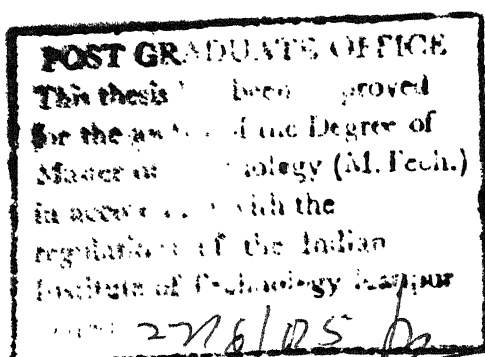 POST GRADUATE OFFICE
This thesis been approved
for the award of the Degree of
Master of Technology (M. Tech.)
in accordance with the
regulations of the Indian
Institute of Technology Kanpur